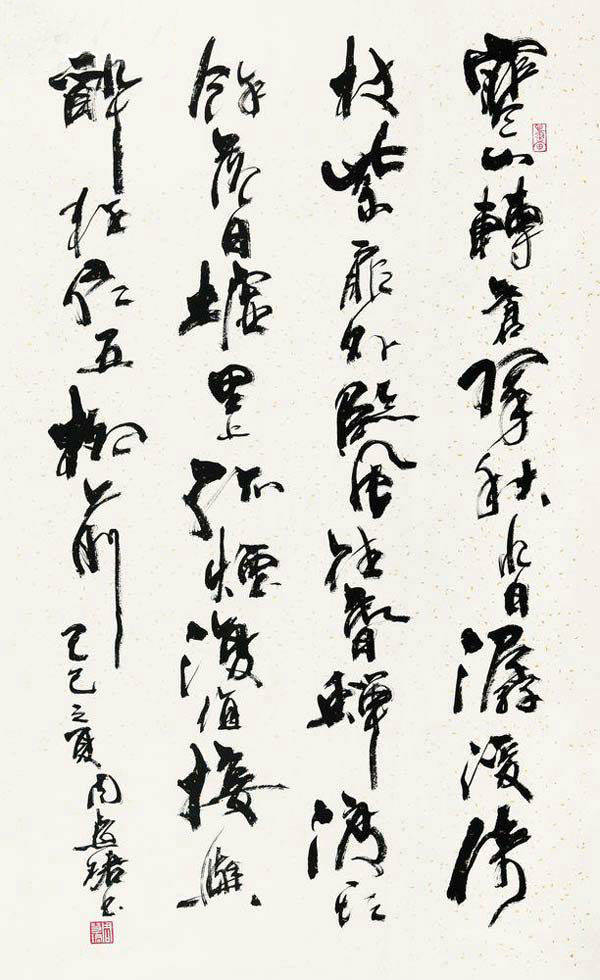 寒山轉蒼翠秋水日潺湲倚
杖柴扉外臨風聽暮蟬渡頭
餘落日墟里上孤煙復值接輿
醉狂歌五柳前 己巳之夏周慧珺书